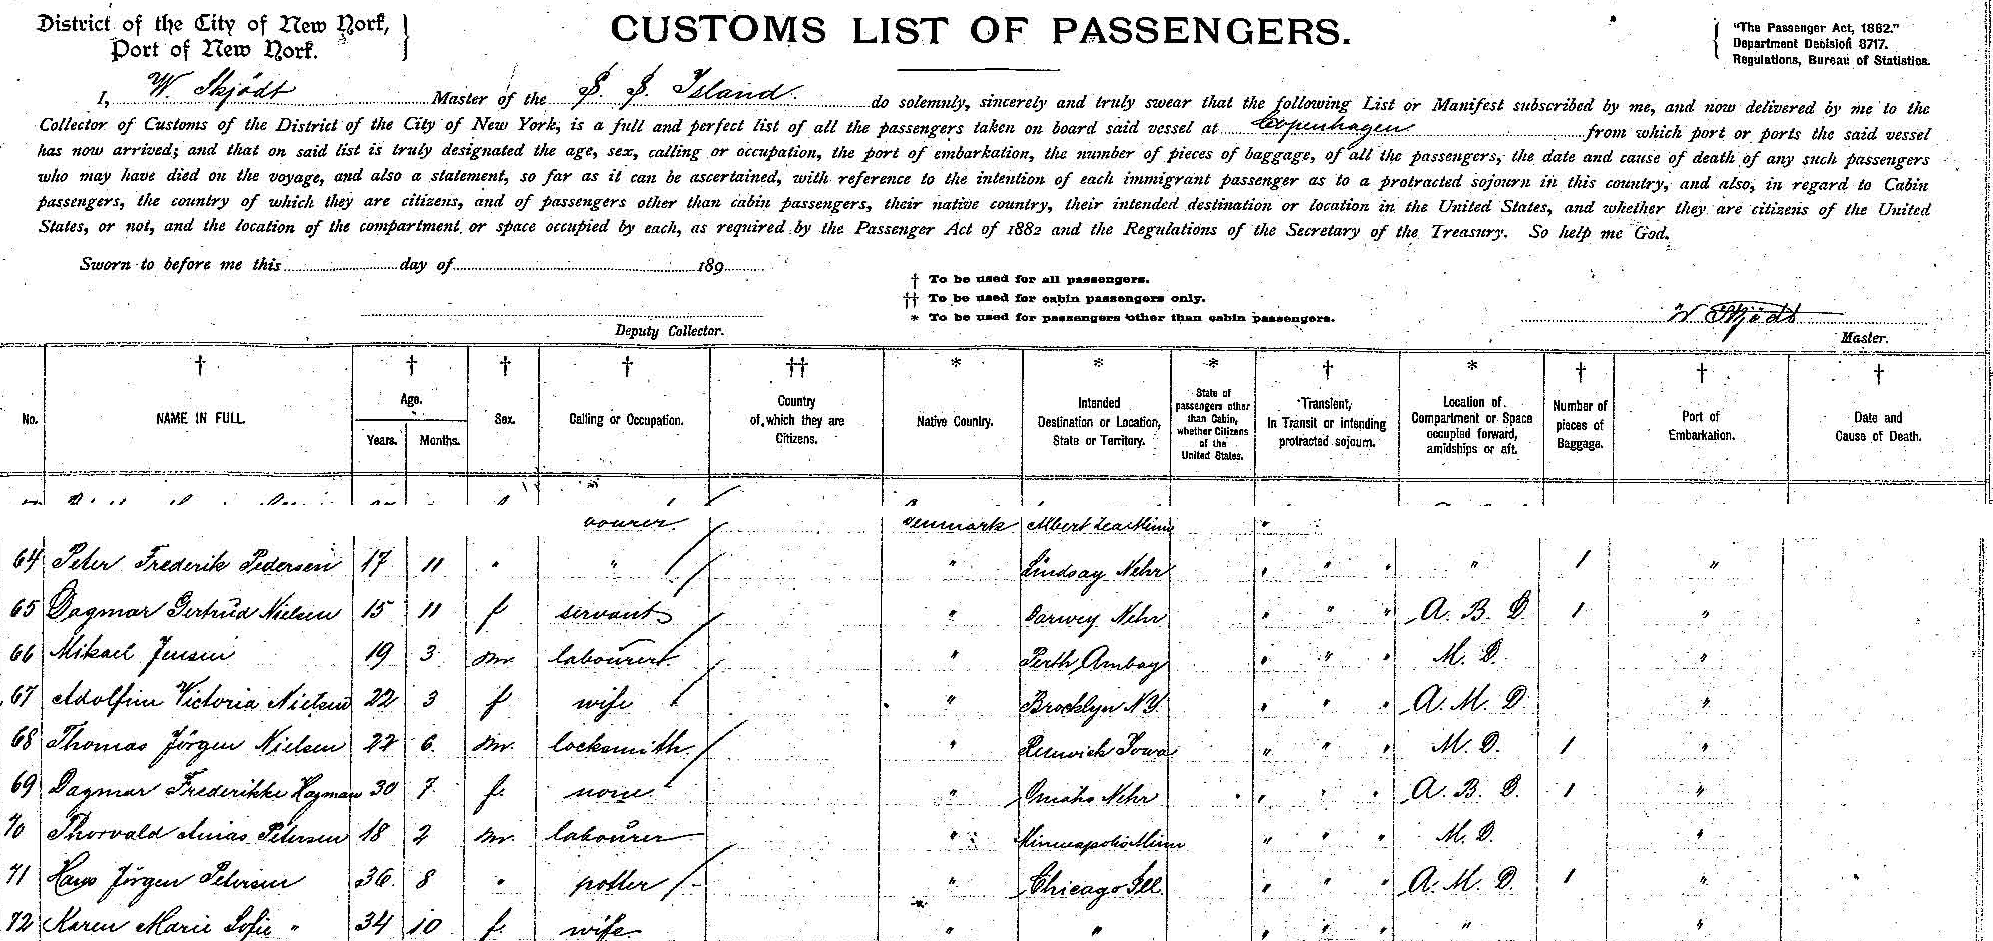 District of the City of New York,
Port of New York.
CUSTOMS LIST OF PASSENGERS.
"The Passenger Act, 1882."
Department Decision 8717.
Regulations, Bureau of Statistics.
I, W. Skjödt Master of the S. S. Island. do solemnly, sincerely and truly swear that the following List or Manifest subscribed by me, and now delivered by me to the
Collector of Customs of the District of the City of New York, is a full and perfect list of all the passengers taken on board said vessel at Copenhagen from which port or ports the said vessel
has now arrived; and that on said list is truly designated the age, sex, calling or occupation, the port of embarkation, the number of pieces of baggage, of all the passengers, the date and cause of death of any such passengers
who may have died on the voyage, and also a statement, so far as it can be ascertained, with reference to the intention of each immigrant passenger as to a protracted sojourn in this country, and also, in regard to Cabin
passengers, the country of which they are citizens, and of passengers other than cabin passengers, their native country, their intended destination or location in the United States, and whether they are citizens of the United
States, or not, and the location of the compartment or space occupied by each, as required by the Passenger Act of 1882 and the Regulations of the Secretary of the Treasury. So help me God.
Sworn to before me this day of 189
† To be used for all passengers.
†† To be used for cabin passengers only.
* To be used for passengers other than cabin passengers.
W Skjödt
Deputy Collector.
Master.
† † † † †† * * * † * † † †
No. NAME IN FULL. Age. Years. Months. Sex. Calling or Occupation. Country of which they are Citizens. Native Country. Intended Destination or Location, State or Territory. State of passengers other than Cabin, whether Citizens of the United States. Transient, In Transit or intending protracted sojourn. Location of Compartment or Space occupied forward, amidships or aft. Number of pieces of Baggage. Port of Embarkation. Date and Cause of Death.
Denmark Albert Lea Minn "
64 Peter Frederik Pedersen 17 11 " " " Lindsay Nebr " " " " 1 "
65 Dagmar Gertrud Nielsen 15 11 f servant " Nebr " " " A. B. D. 1 "
66 Mikael Jensen 19 3 m. labourer " Perth Amboy " " " M. D. "
67 Adolfine Victoria Nielsen 22 3 f wife " Brooklyn N.Y. " " " A. M. D. "
68 Thomas Jörgen Nielsen 22 6. m. locksmith " Renwick Iowa " " " M. D. 1 "
69 Dagmar Frederikke Hagman 30 7. f. none " Omaha Nebr " " " A. B. D. 1 "
70 Thorvald Petersen 18 2 m. labourer " Minneapolis Minn " " " M. D. "
71 Hans Jörgen Petersen 36. 8 " potter " Chicago Ill. " " " A. M. D. 1 "
72 Karen Marie Sofie " 34 10 f. wife " " " " " " "